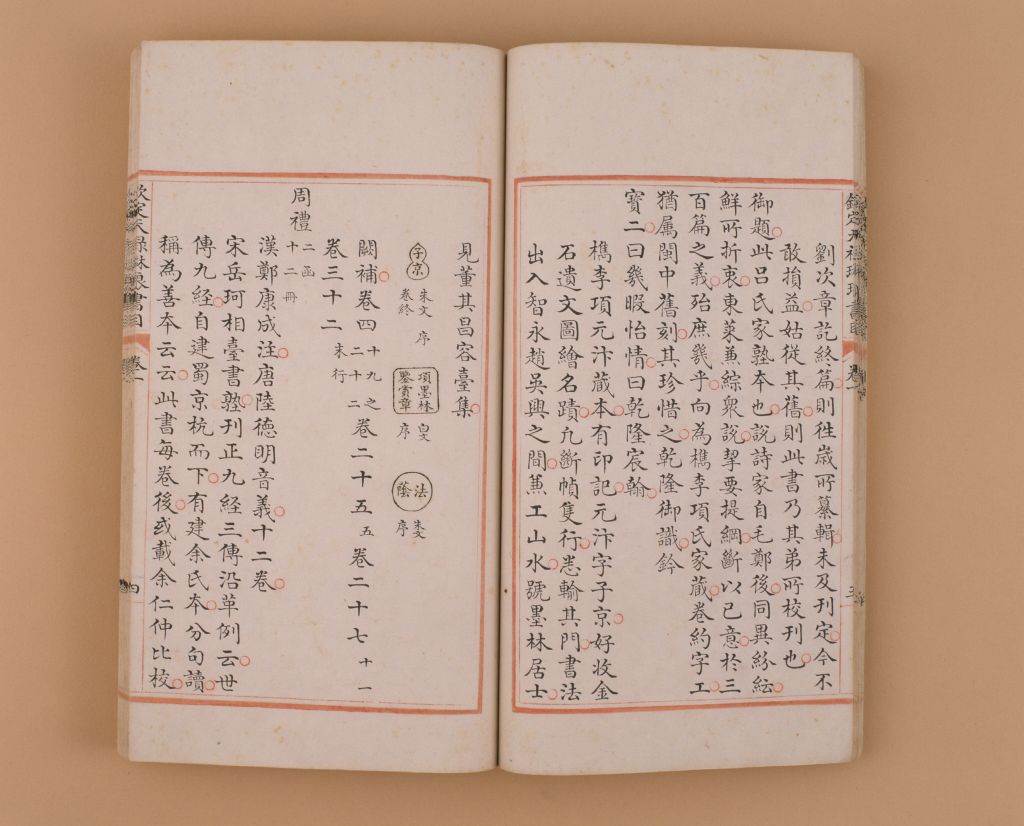 劉次章訖終篇則徃歲所纂輯未及刊定今不
敢損益姑從其舊則此書乃其弟所校刊也
御題此呂氏家塾本也說詩家自毛鄭後同異紛紜
鮮所折衷東萊兼綜衆說挈要提綱斷以已意於三
百篇之義殆庶幾乎向為檇李項氏家藏卷約字工
猶屬閩中舊刻其珍惜之乾隆御識鈐
寶二曰幾暇怡情曰乾隆宸翰
檇李項元汴藏本有印記元汴字子京好收金
石遺文圖繪名蹟凡斷幀隻行悉輸其門書法
出入智永趙吳興之間兼工山水號墨林居士
見董其昌容臺集
子京 朱文 序 卷終
項墨林鑒賞章 白文 序
法蔭 朱文 序
闕補卷四 十九之二十二 卷二十五 五 卷二十七 十一
卷三十二 末行
周禮 二函十二冊
漢鄭康成注唐陸德明音義十二卷
宋岳珂相臺書塾刊正九經三傳沿革例云世
傳九經自建蜀京杭而下有建余氏本分句讀
稱為善本云云此書每卷後或載余仁仲比校
欽定天祿琳琅書目 卷一 四